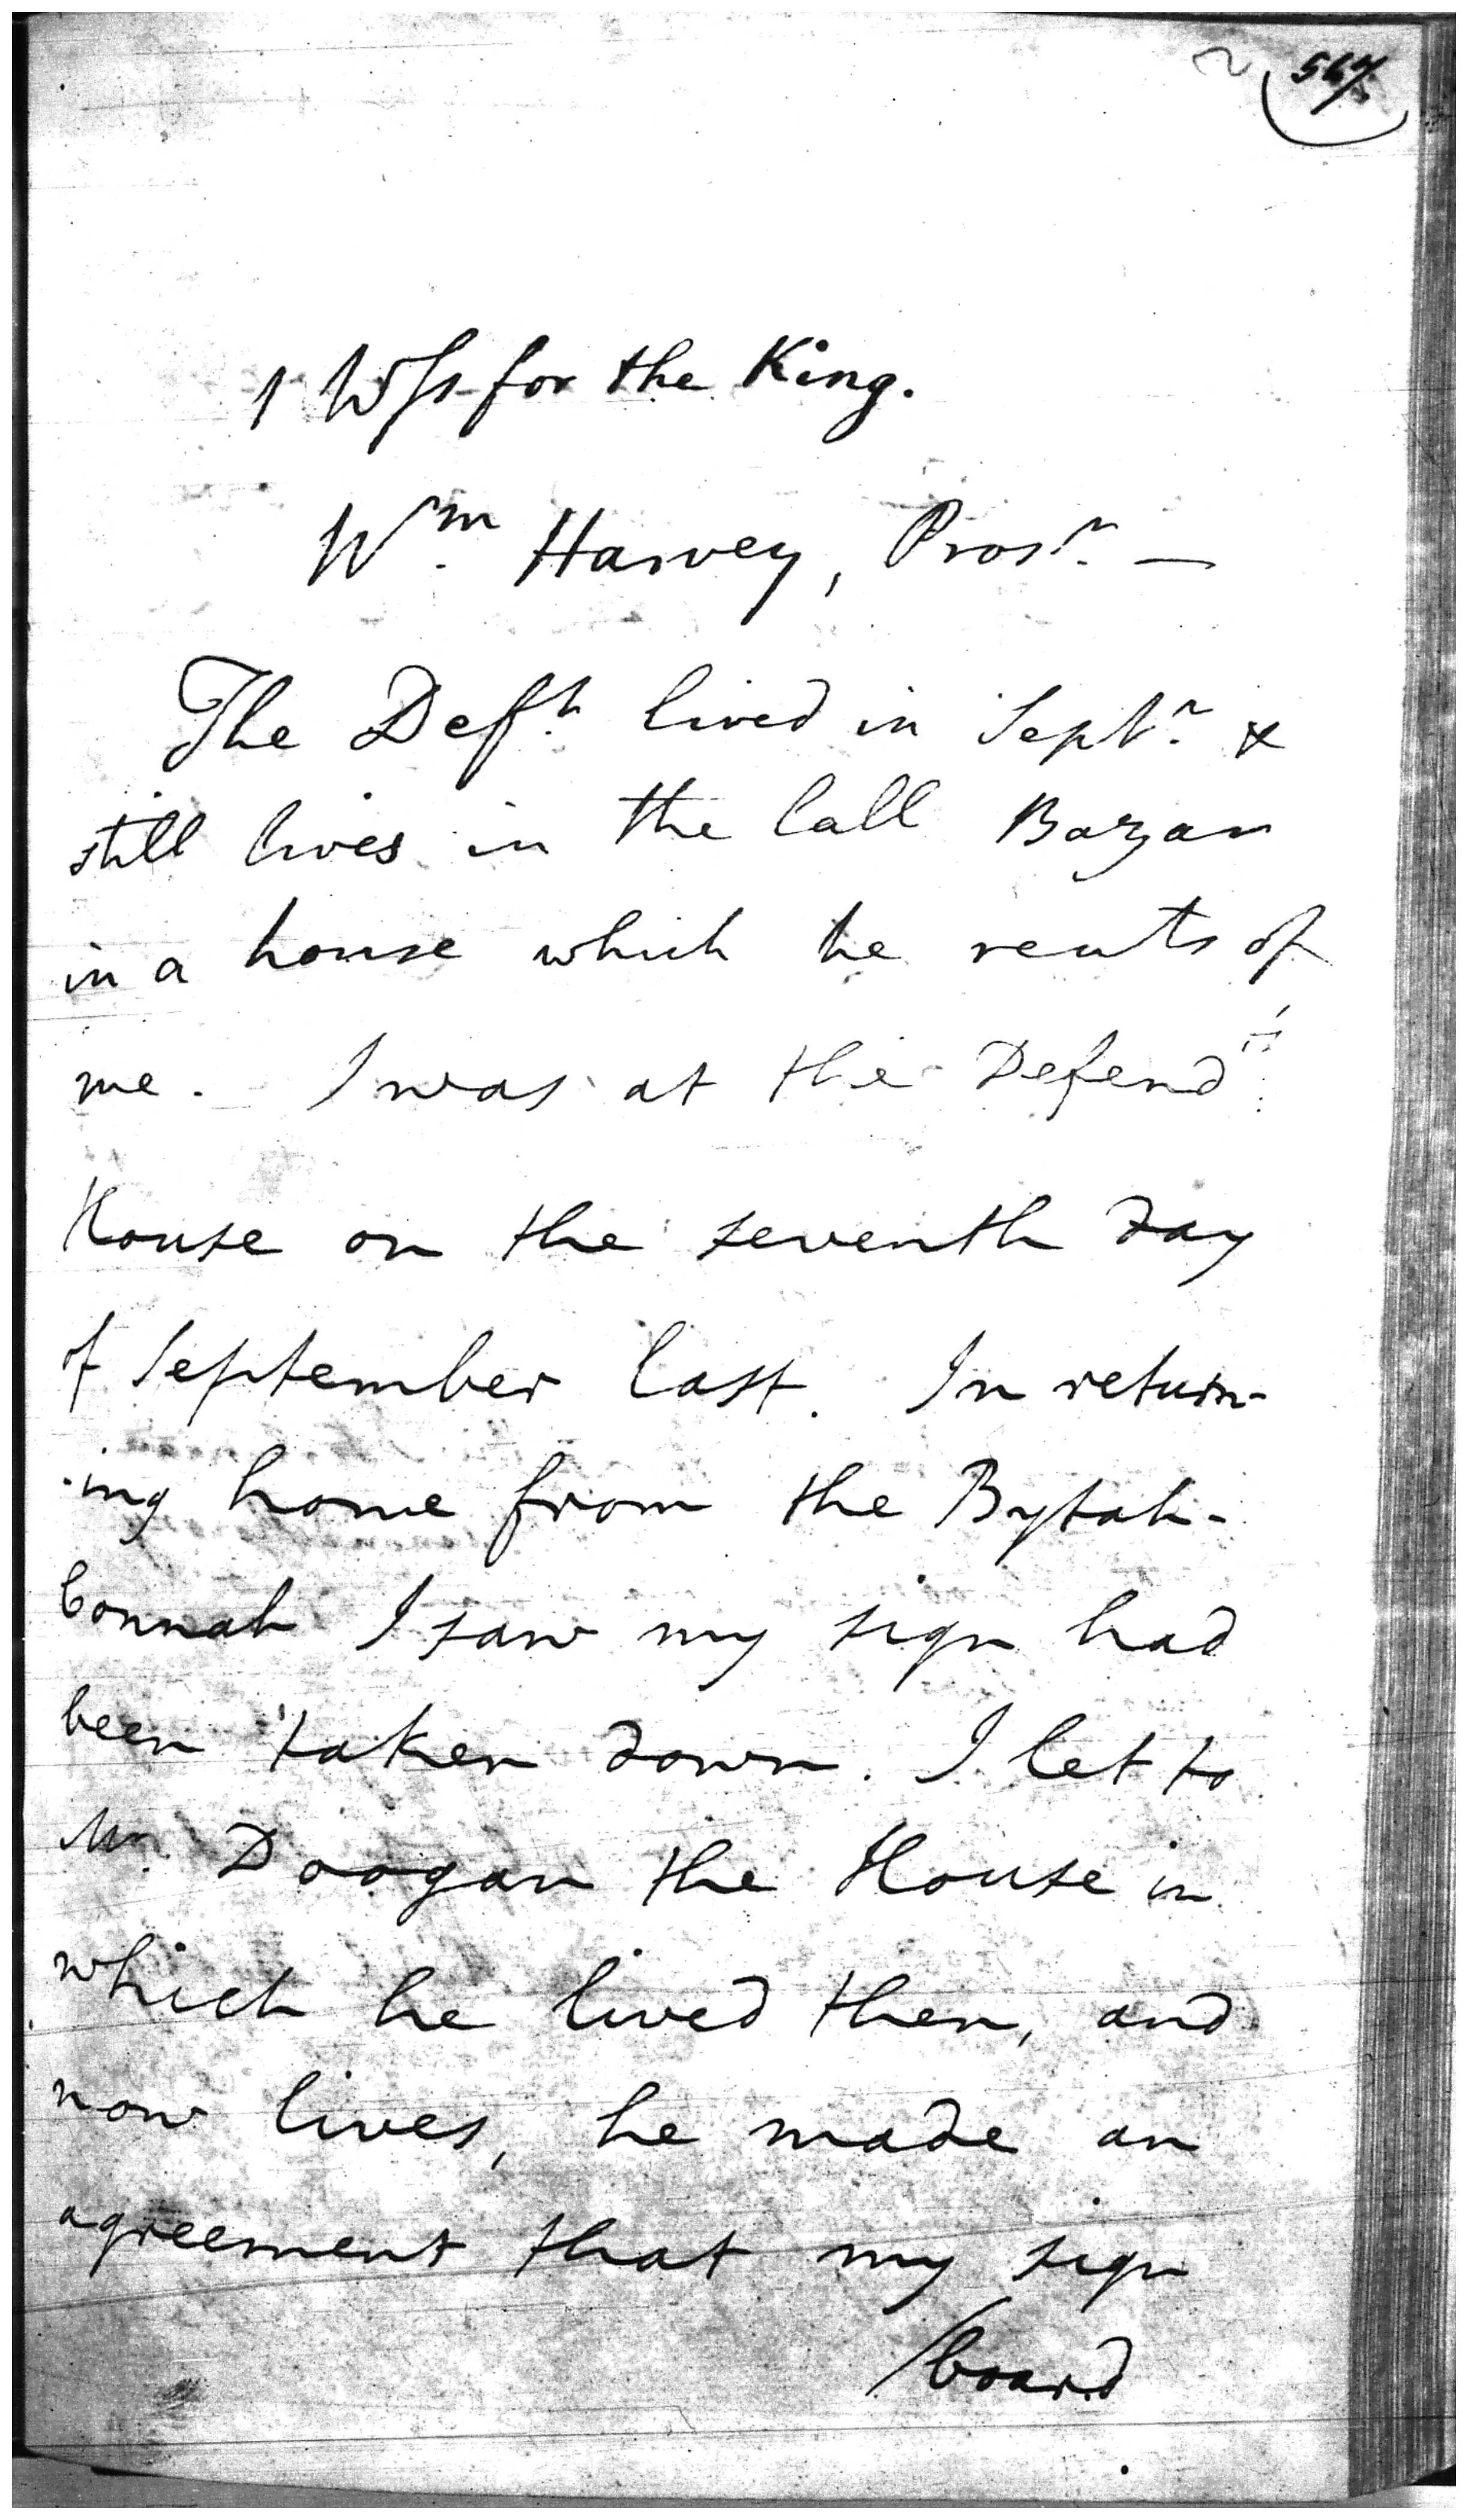 567
1 Wss for the King.
Wm. Harvey, Prosr. —
The Deft. lived in Septr. &
still lives in the Lall Bazar
in a house which he rents of
me. I was at the Defendts.
House on the seventh day
of September last. In return-
-ing home from the Bytak-
connah I saw my sign had
been taken down. I let to
Mr. Doogan the House in
which he lived then, and
now lives, he made an
agreement that my sign
/board